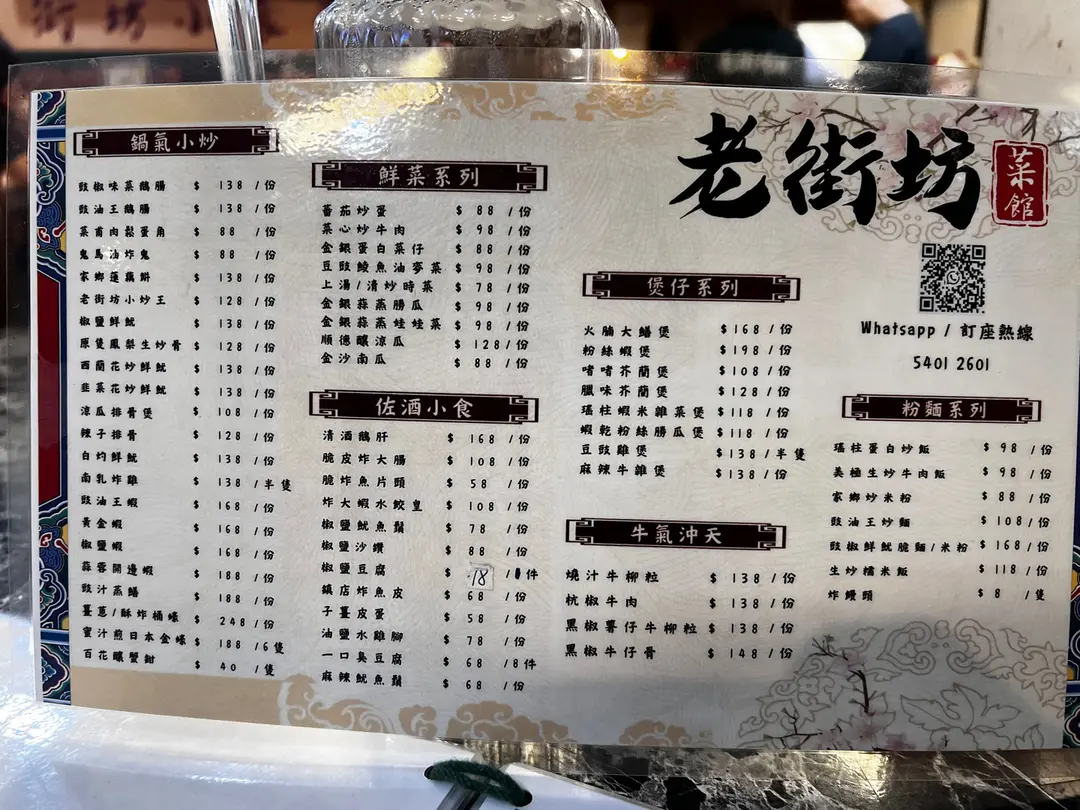 鍋氣小炒
豉椒味菜鵝腸 $ 138 /份
豉油王鵝腸 $ 138 /份
菜甫肉鬆蛋角 $ 88 /份
鬼馬油炸鬼 $ 88 /份
家鄉蓮藕餅 $ 138 /份
老街坊小炒王 $ 128 /份
椒鹽鮮魷 $ 138 /份
原隻鳳梨生炒骨 $ 128 /份
西蘭花炒鮮魷 $ 138 /份
韭菜花炒鮮魷 $ 138 /份
涼瓜排骨煲 $ 108 /份
辣子排骨 $ 128 /份
白灼鮮魷 $ 138 /份
南乳炸雞 $ 138 /半隻
豉油王蝦 $ 168 /份
黃金蝦 $ 168 /份
椒鹽蝦 $ 168 /份
蒜蓉開邊蝦 $ 188 /份
豉汁蒸鱔 $ 188 /份
薑蔥/酥炸桶蠔 $ 248 /份
蜜汁煎日本金蠔 $ 188 /6隻
百花釀蟹鉗 $ 40 /隻
鮮菜系列
蕃茄炒蛋 $ 88 /份
菜心炒牛肉 $ 98 /份
金銀蛋白菜仔 $ 88 /份
豆豉鯪魚油麥菜 $ 98 /份
上湯/清炒時菜 $ 78 /份
金銀蒜蒸勝瓜 $ 98 /份
金銀蒜蒸娃娃菜 $ 98 /份
順德釀涼瓜 $ 128 /份
金沙南瓜 $ 88 /份
佐酒小食
清酒鵝肝 $ 168 /份
脆皮炸大腸 $ 108 /份
脆炸魚片頭 $ 58 /份
炸大蝦水餃皇 $ 108 /份
椒鹽魷魚鬚 $ 78 /份
椒鹽沙鑽 $ 88 /份
椒鹽豆腐 $ 18 /件
鎮店炸魚皮 $ 68 /份
子薑皮蛋 $ 58 /份
油鹽水雞腳 $ 78 /份
一口臭豆腐 $ 68 /8件
麻辣魷魚鬚 $ 68 /份
老街坊
菜館
Whatsapp / 訂座熱線
5401 2601
煲仔系列
火腩大鱔煲 $168 /份
粉絲蝦煲 $198 /份
啫啫芥蘭煲 $108 /份
臘味芥蘭煲 $128 /份
瑤柱蝦米雜菜煲 $118 /份
蝦乾粉絲勝瓜煲 $118 /份
豆豉雞煲 $138 /半隻
麻辣牛雜煲 $138 /份
牛氣沖天
燒汁牛柳粒 $ 138 /份
杭椒牛肉 $ 138 /份
黑椒薯仔牛柳粒 $ 138 /份
黑椒牛仔骨 $ 148 /份
粉麵系列
瑤柱蛋白炒飯 $ 98 /份
美極生炒牛肉飯 $ 98 /份
家鄉炒米粉 $ 88 /份
豉油王炒麵 $ 108 /份
豉椒鮮魷脆麵/米粉 $ 168 /份
生炒糯米飯 $ 118 /份
炸饅頭 $ 8 /隻